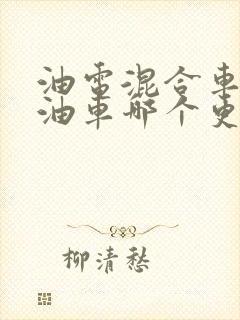 油電混合車
油車哪个更
柳清愁